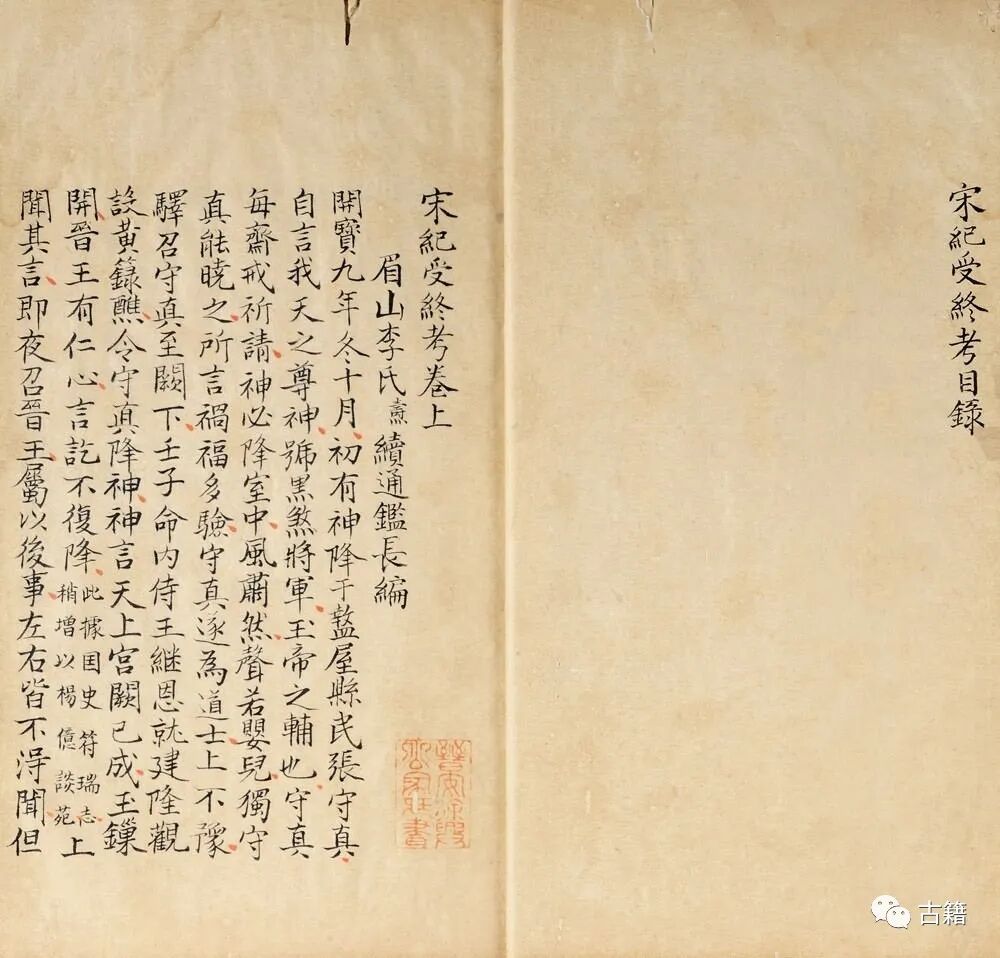 宋紀受終考目錄
宋紀受終考卷上
眉山李氏燾續通鑑長編
開寶九年冬十月初有神降于盩屋縣民張守真
自言我天之尊神號黑煞將軍玉帝之輔也守真
每齋戒祈請神必降室中風肅然聲若嬰兒獨守
真能曉之所言禍福多驗守真遂為道士上不豫
驛召守真至闕下壬子命内侍王継恩就建隆觀
設黄籙醮令守真降神神言天上宫闕已成玉鏁
開晉王有仁心言訖不復降此據国史符瑞志稍增以楊億談苑上
聞其言即夜召晉王屬以後事左右皆不淂聞但
古籍